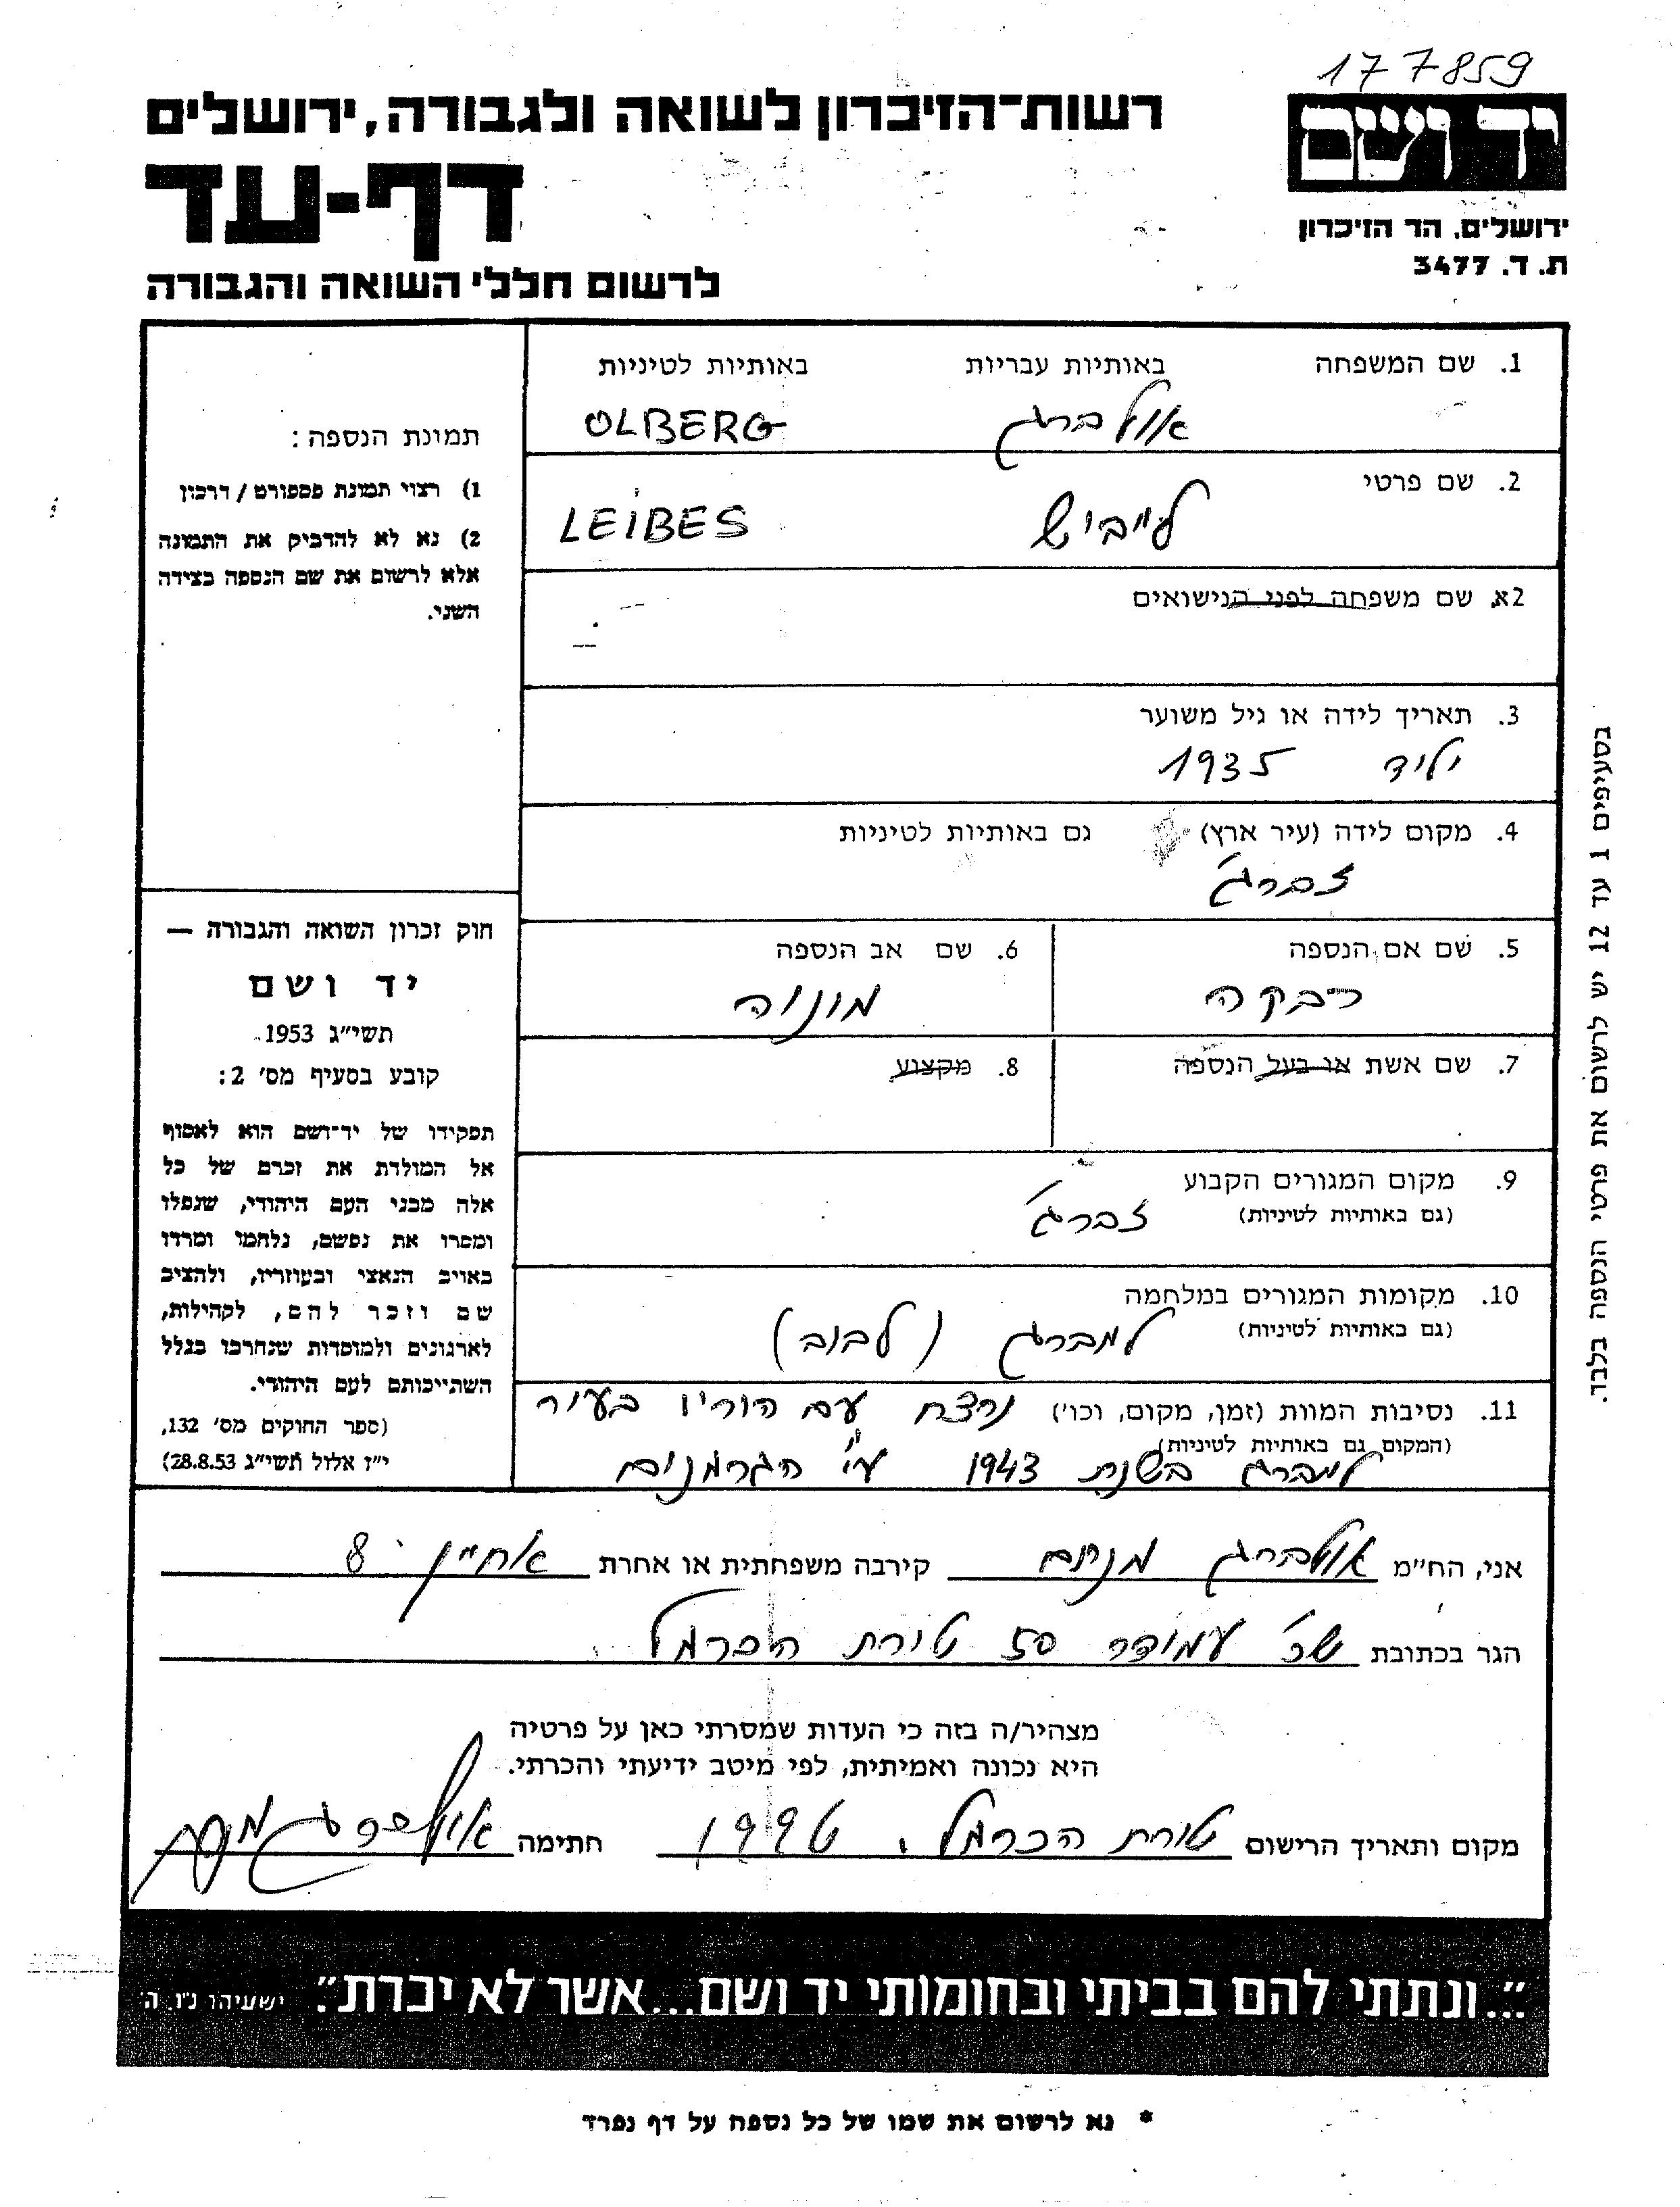 177859
יד ושם
ירושלים, הר הזיכרון
ת. ד. 3477
רשות־הזיכרון לשואה ולגבורה, ירושלים
דף-עד
לרשום חללי השואה והגבורה
1. שם המשפחה באותיות עבריות באותיות לטיניות
אולברג OLBERG
2. שם פרטי
לייביש LEIBES
2א. שם משפחה לפני הנישואים
—
3. תאריך לידה או גיל משוער
יליד 1935
4. מקום לידה (עיר ארץ) גם באותיות לטיניות
זברג'
5. שם אם הנספה 6. שם אב הנספה
רבקה מונוה
7. שם אשת או בעל הנספה 8. מקצוע
9. מקום המגורים הקבוע
(גם באותיות לטיניות)
זברג'
10. מקומות המגורים במלחמה
(גם באותיות לטיניות)
למברג (לבוב)
11. נסיבות המוות (זמן, מקום, וכו') נרצח עם הוריו בעיר
(המקום גם באותיות לטיניות)
למברג בשנת 1943 ע"י הגרמנים
תמונת הנספה:
1) רצוי תמונת פספורט / דרכון
2) נא לא להדביק את התמונה
אלא לרשום את שם הנספה בצידה
השני.
חוק זכרון השואה והגבורה —
יד ושם
תשי"ג 1953
קובע בסעיף מס' 2:
תפקידו של יד־ושם הוא לאסוף
אל המולדת את זכרם של כל
אלה מבני העם היהודי, שנפלו
ומסרו את נפשם, נלחמו ומרדו
באויב הנאצי ובעוזריו, ולהציב
שם וזכר להם, לקהילות,
לארגונים ולמוסדות שנחרבו בגלל
השתייכותם לעם היהודי.
(ספר החוקים מס' 132,
י"ז אלול תשי"ג 28.8.53)
בסעיפים 1 עד 12 יש לרשום את פרטי הנספה בלבד.
אני, הח"מ אולברג מנחם קירבה משפחתית או אחרת אחיין 8
הגר בכתובת שכ' עמידר 50 טירת הכרמל
מצהיר/ה בזה כי העדות שמסרתי כאן על פרטיה
היא נכונה ואמיתית, לפי מיטב ידיעתי והכרתי.
מקום ותאריך הרישום טירת הכרמל, 1996 חתימה אולברג מנחם
"...ונתתי להם בביתי ובחומותי יד ושם...אשר לא יכרת". ישעיהו נ"ו, ה'
* נא לרשום את שמו של כל נספה על דף נפרד